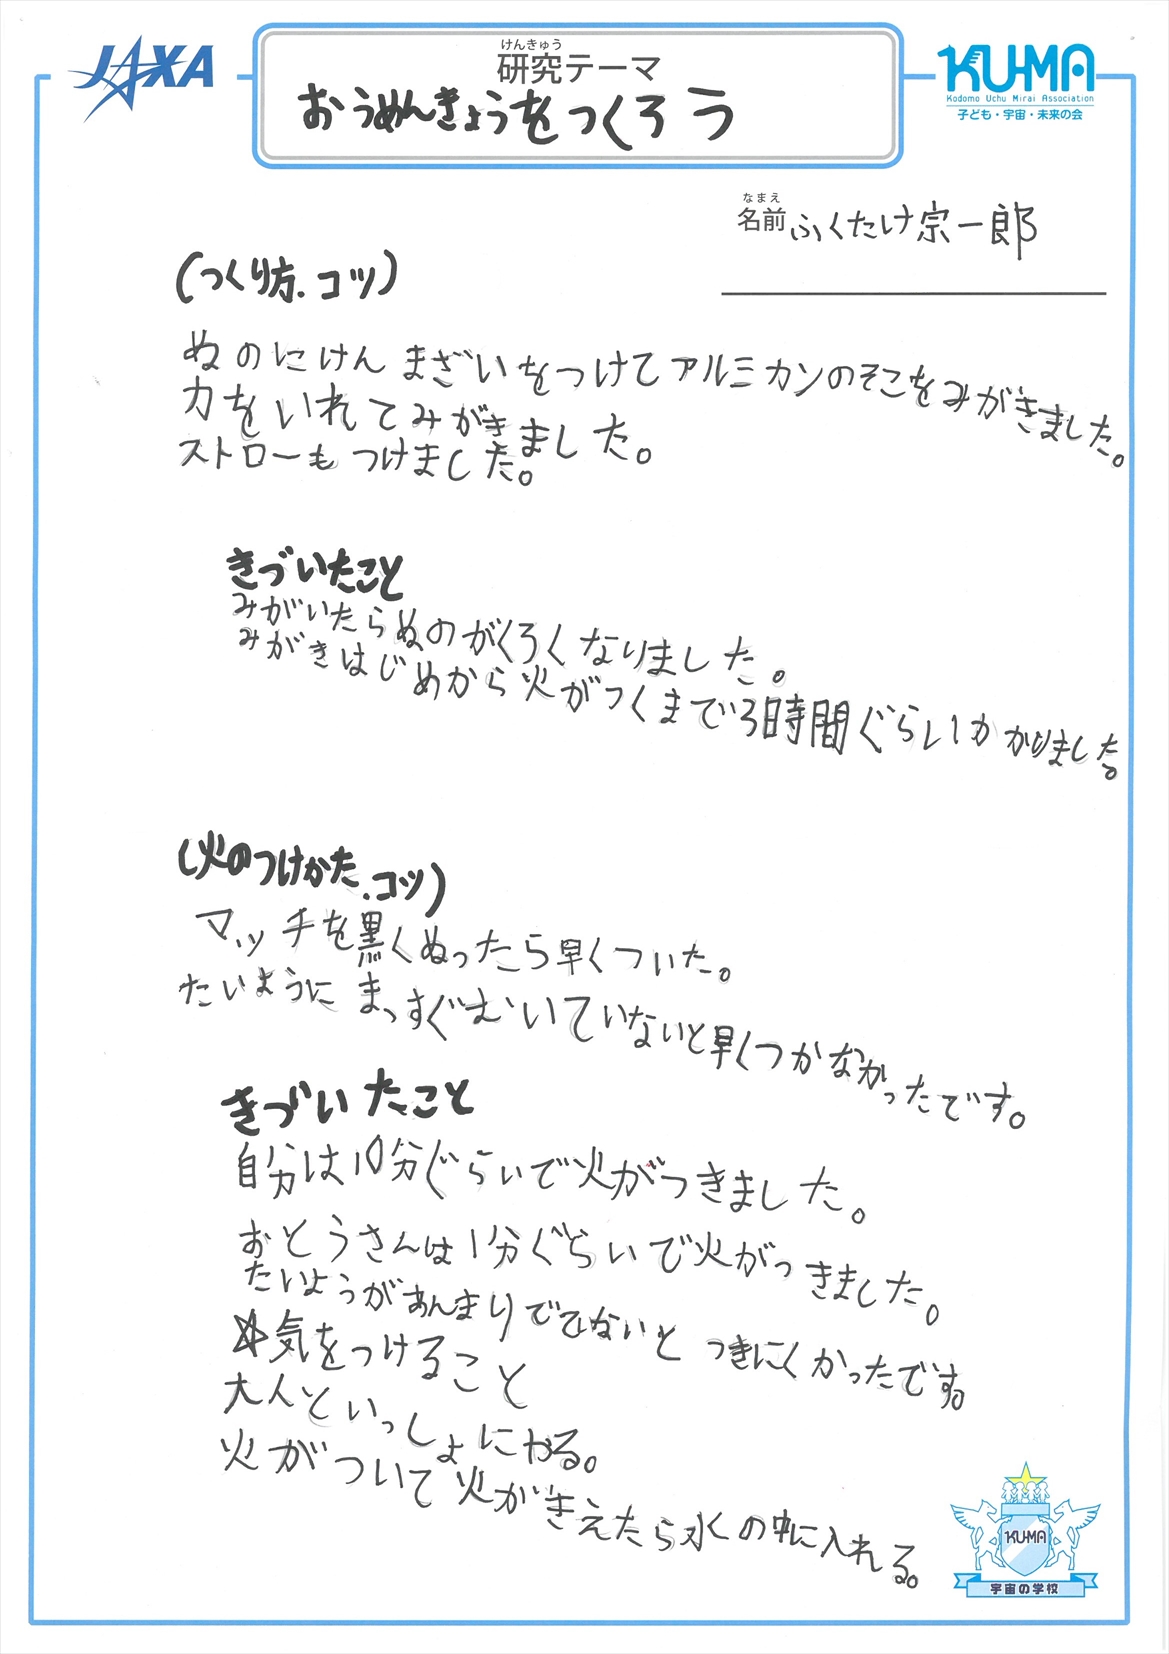 JAXA
けんきゅう
研究テーマ
おうめんきょうをつくろう
KU-MA
Kodomo Uchu Mirai Association
子ども・宇宙・未来の会
なまえ
名前 ふくたけ宗一郎
(つくり方.コツ)
ぬのにけんまざいをつけてアルミカンのそこをみがきました。
力をいれてみがきました。
ストローもつけました。
きづいたこと
みがいたらぬのがくろくなりました。
みがきはじめから火がつくまで3時間ぐらいかかりました。
(火のつけかた.コツ)
マッチを黒くぬったら早くついた。
たいようにまっすぐむいていないと早くつかなかったです。
きづいたこと
自分は10分ぐらいで火がつきました。
おとうさんは1分ぐらいで火がつきました。
たいようがあんまりでてないとつきにくかったです。
☆気をつけること
大人といっしょにやる。
火がついて火がきえたら水の中に入れる。
KU-MA
宇宙の学校